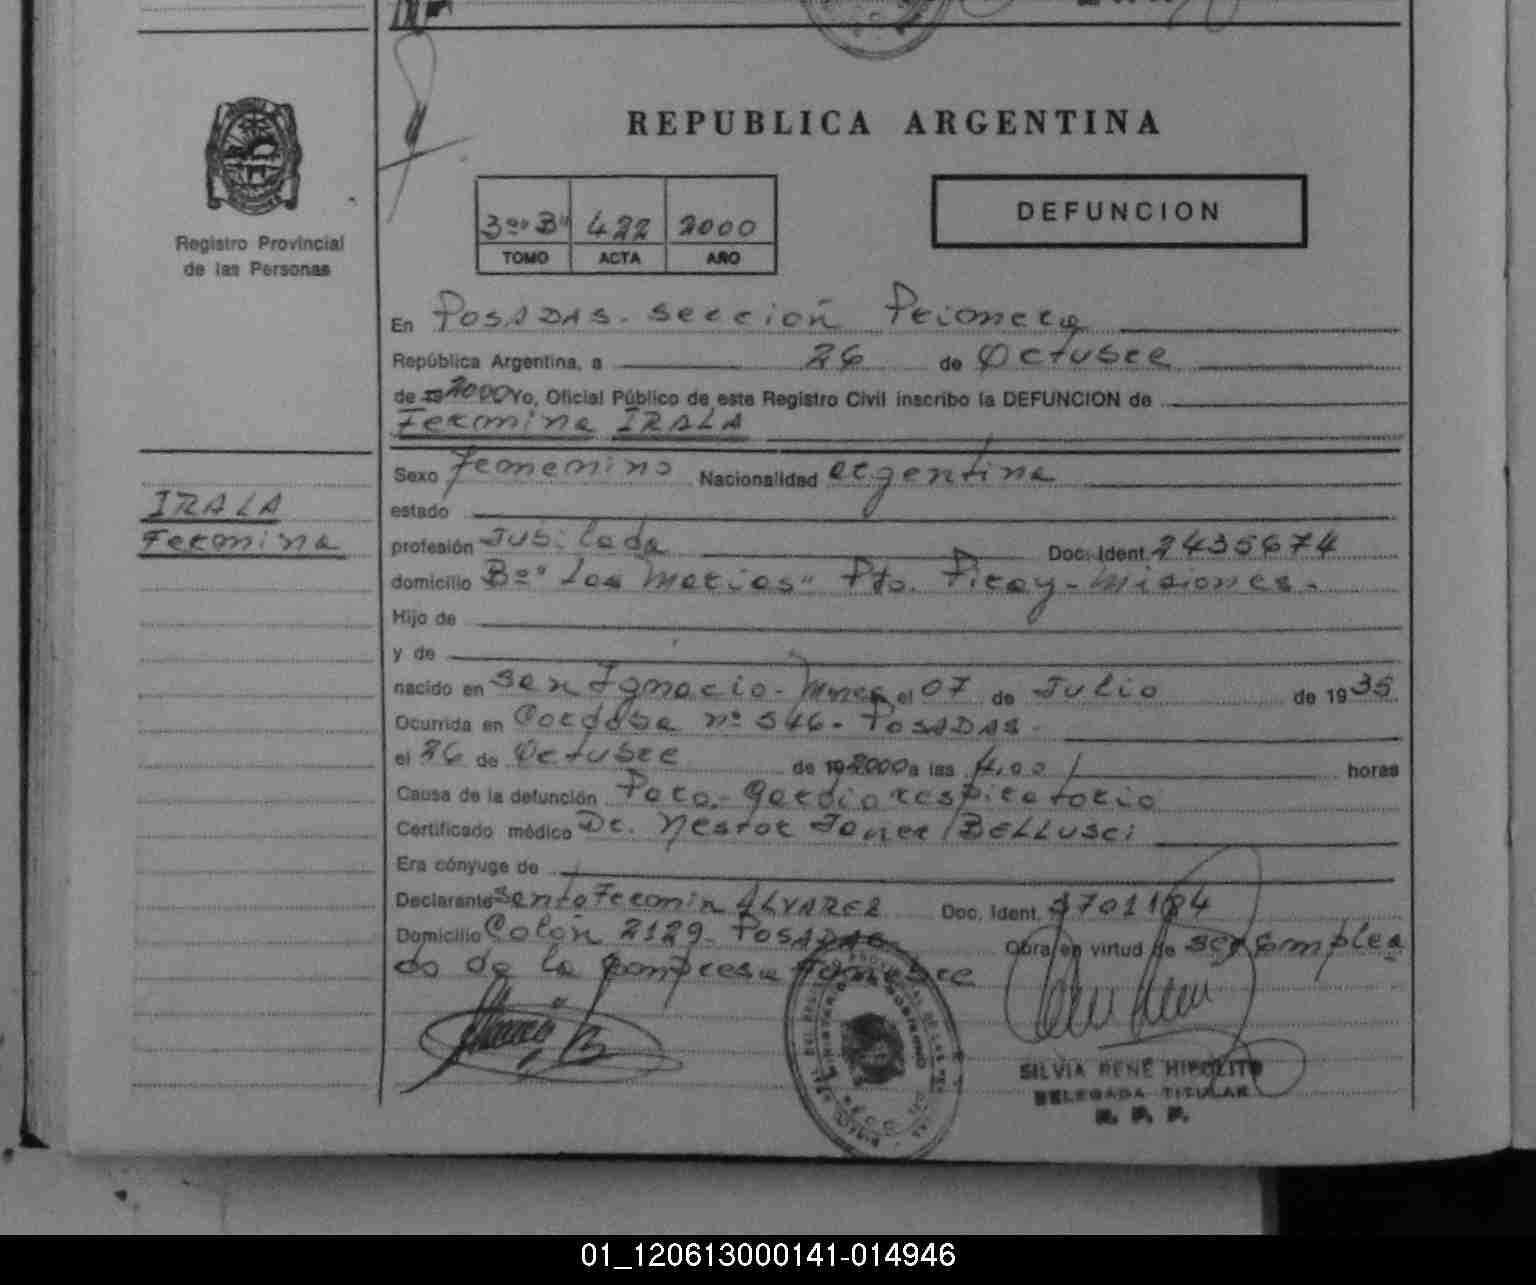 REPUBLICA ARGENTINA
Registro Provincial
de las Personas
3ro "B" 422 2000
TOMO ACTA AÑO
DEFUNCION
En POSADAS. Sección Primera
República Argentina, a 26 de Octubre
de 2000 Yo, Oficial Público de este Registro Civil inscribo la DEFUNCION de
Fermina IRALA
IRALA
Fermina
Sexo femenino Nacionalidad argentina
estado
profesión Jubilada Doc. Ident. 2435674
domicilio Bº "Las Marias" Pto. Piray - Misiones.
Hijo de
y de
nacido en San Ignacio - Mnes el 07 de Julio de 1935
Ocurrida en Cordoba nº 546 - POSADAS.
el 26 de Octubre de 2000 a las horas
Causa de la defunción Paro cardiorespiratorio
Certificado médico Dr. Nestor BELLUSCI
Era cónyuge de
Declarante Santo Fermin ALVAREZ Doc. Ident.
Domicilio Colón 2129 - POSADAS Obra en virtud de ser emplea
do de la empresa funebre
SILVIA RENE HIPOLITO
DELEGADA TITULAR
R. P. P.
01_120613000141-014946